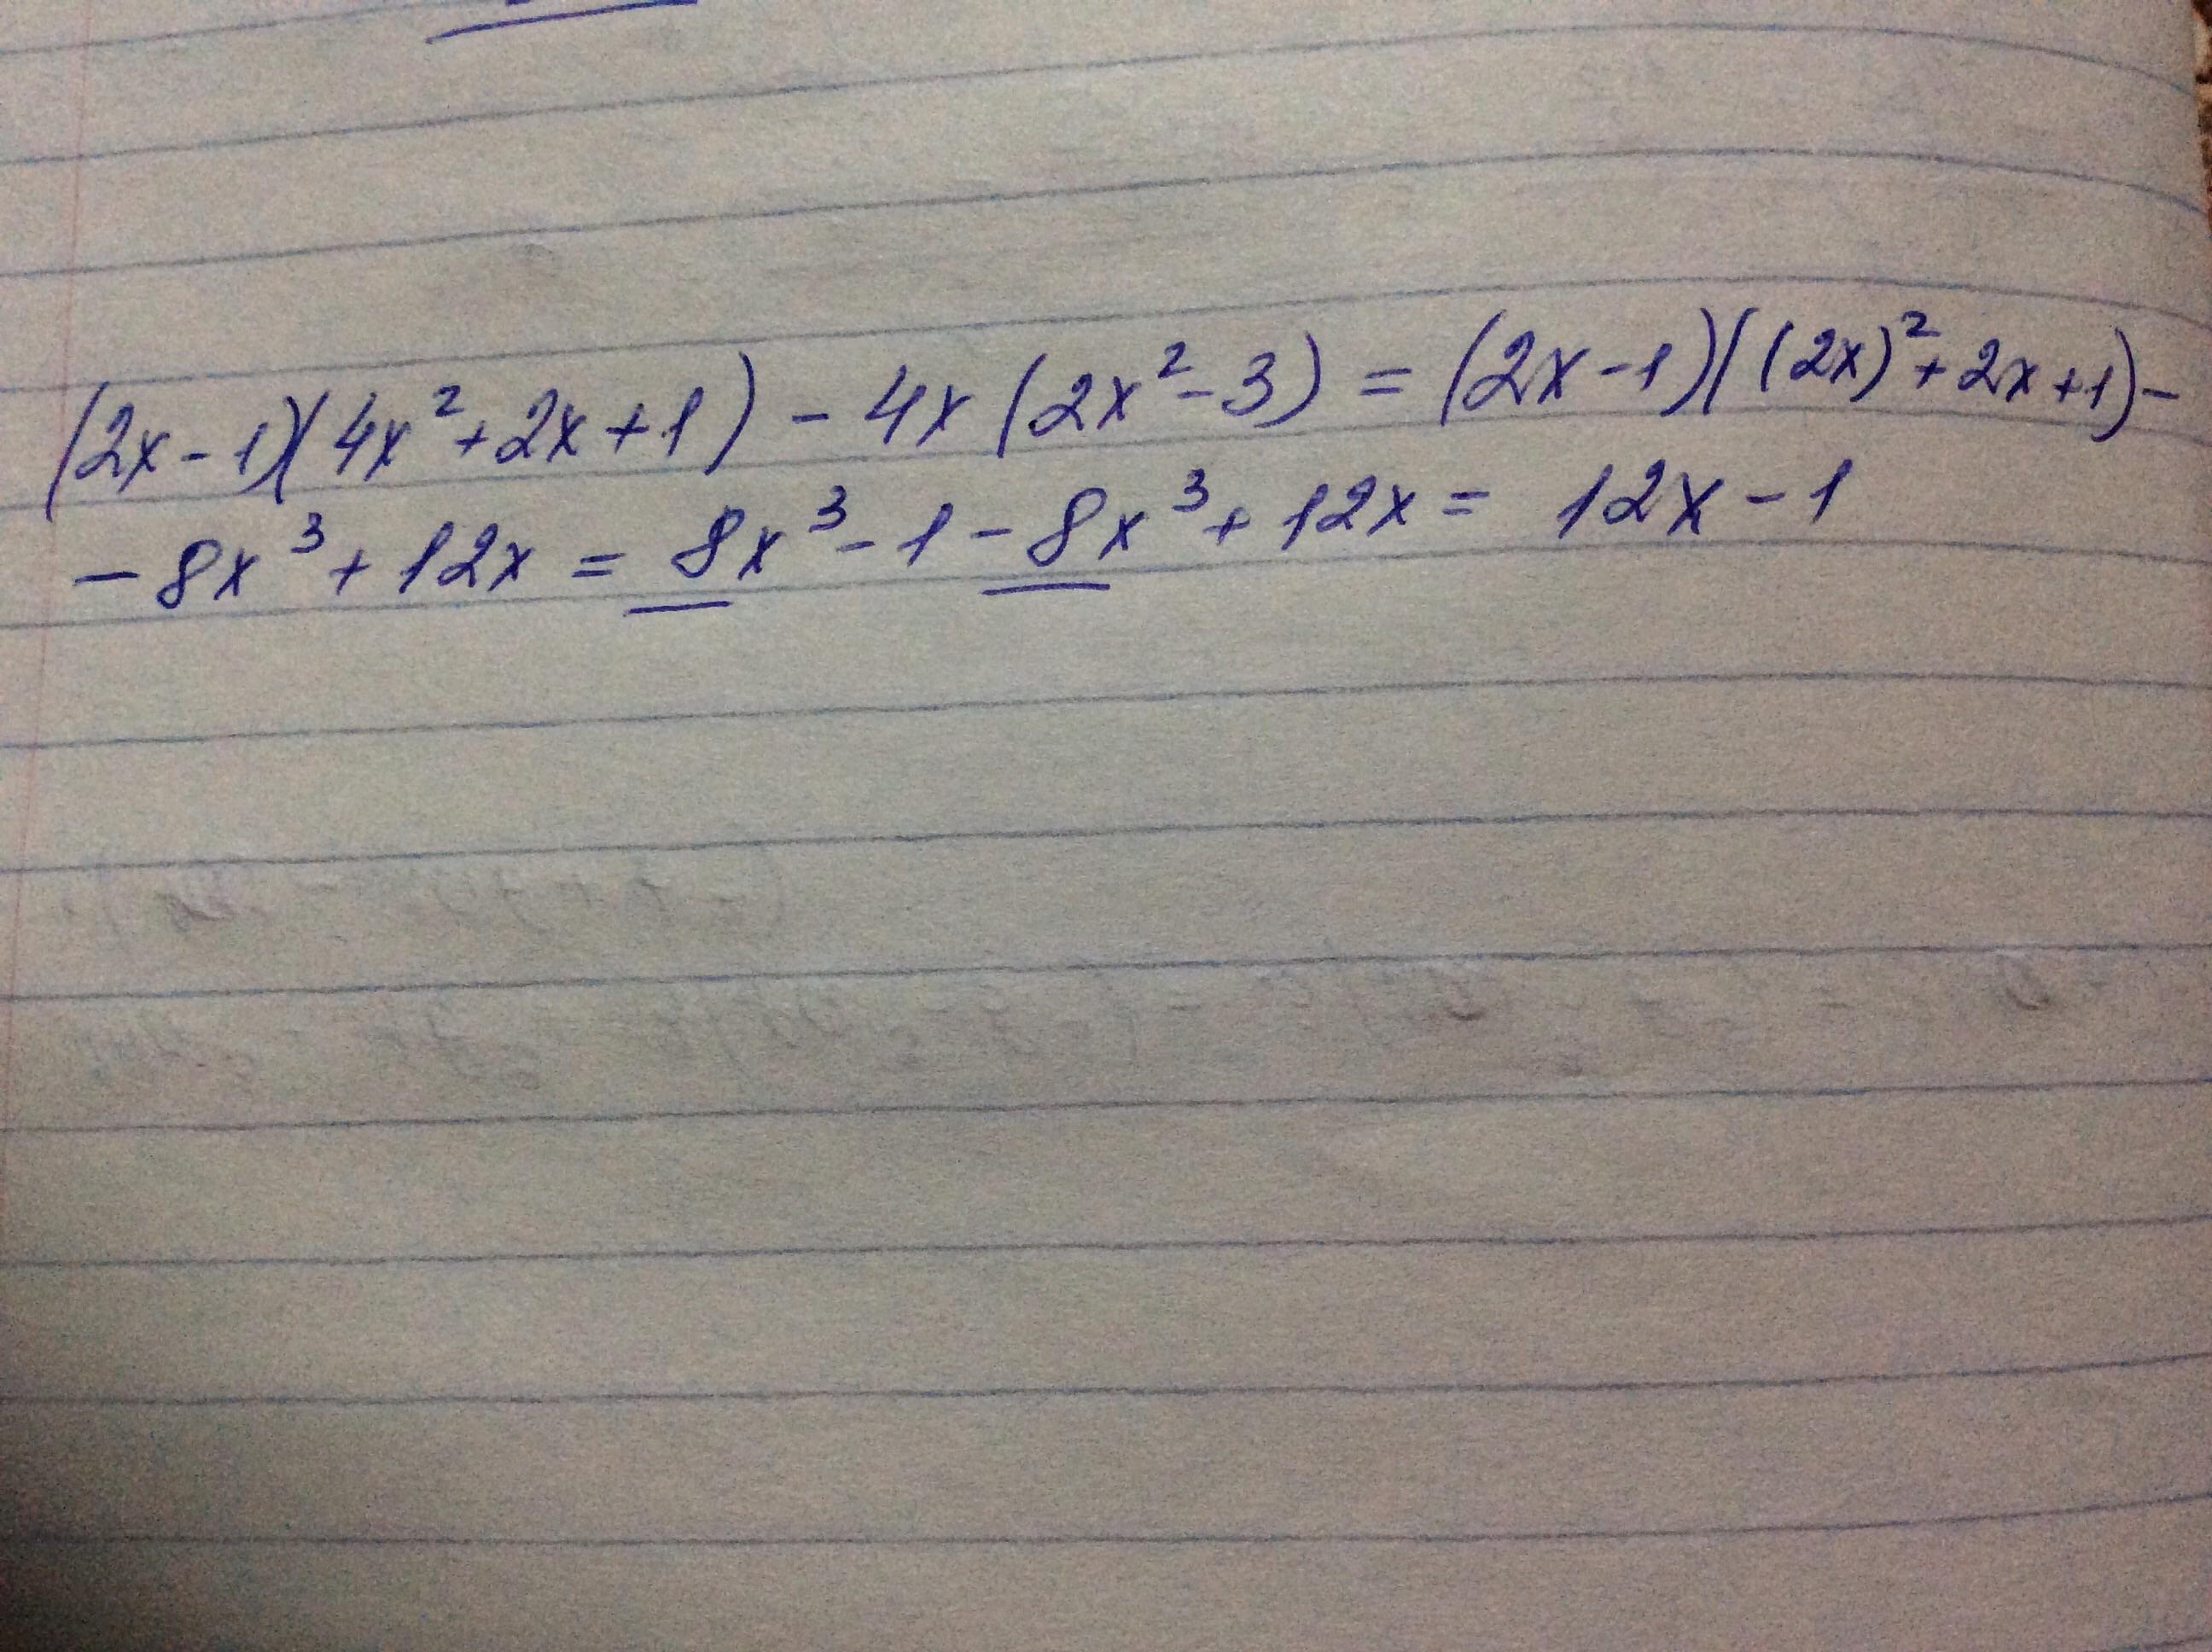 (2x-1)(4x²+2x+1) - 4x(2x²-3) = (2x-1)((2x)²+2x+1)-
-8x³+12x = 8x³-1-8x³+12x = 12x-1